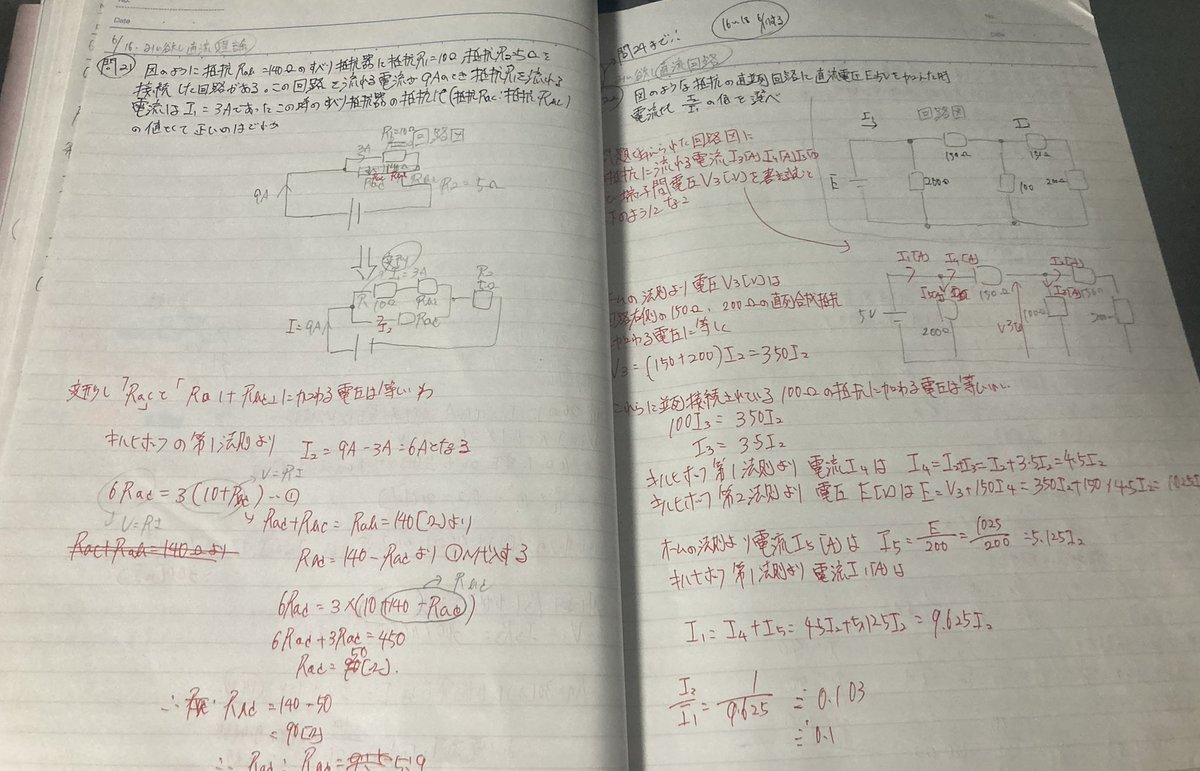 Date
6/16 直流理論
問21 図のように抵抗Rab=140Ωのすべり抵抗器に抵抗R1=10Ω 抵抗R2=5Ωを
接続した回路がある。この回路を流れる電流が9Aのとき抵抗R1を流れる
電流はI1=3Aであった この時のすべり抵抗器の抵抗比(抵抗Rac:抵抗Rbc)
の値として正しいのはどれか
回路図
R1=10Ω
3A
9A
R2=5Ω
変形
I=3A
10Ω
Rbc
R2
5Ω
I=9A
Rac
変形し「Rac」と「R1+Rbc」に加わる電圧は等しいわ
キルヒホフの第1法則より I2=9A-3A=6Aとなる
V=RI
6Rac=3(10+Rbc)…①
V=RI
Rac+Rbc=Rab=140[Ω]より
Rac+Rab=140Ωより
Rbc=140-Racより ①へ代入する
Rbc
6Rac=3×(10+140-Rac)
6Rac+3Rac=450
Rac=50[Ω].
∴ Rbc=140-50
=90[Ω]
∴ Rac:Rbc= 5:9
16~18 6/18する
No.
Date
問24まで!
直流回路
図のような抵抗の直並列回路に直流電圧E[V]を加えた時
電流比 I2/I1 の値を選べ
I1
回路図
I2
150Ω
150Ω
E
200Ω
100
200Ω
問題で与えられた回路図に
抵抗に流れる電流I3[A] I4[A] I5[A]
と端子間電圧V3[V]を書き込むと
下のようになる
I1[A]
I4[A]
I2[A]
150Ω
150Ω
5V
200Ω
100Ω
200Ω
V3[V]
オームの法則より電圧V3[V]は
回路右側の150Ω、200Ωの直列合成抵抗
に加わる電圧に等しく
V3=(150+200)I2=350I2
これらに並列接続されている100Ωの抵抗に加わる電圧は等しい
100I3=350I2
I3=3.5I2
キルヒホフ第1法則より 電流I4は I4=I2+I3=I2+3.5I2=4.5I2
キルヒホフ第2法則より 電圧E[V]はE=V3+150I4=350I2+150×4.5I2=1025I
オームの法則より電流I5[A]は I5=E/200=1025/200=5.125I2
キルヒホフ第1法則より電流I1[A]は
I1=I4+I5=4.5I2+5.125I2=9.625I2
I2/I1=1/9.625≒0.103
≒0.1